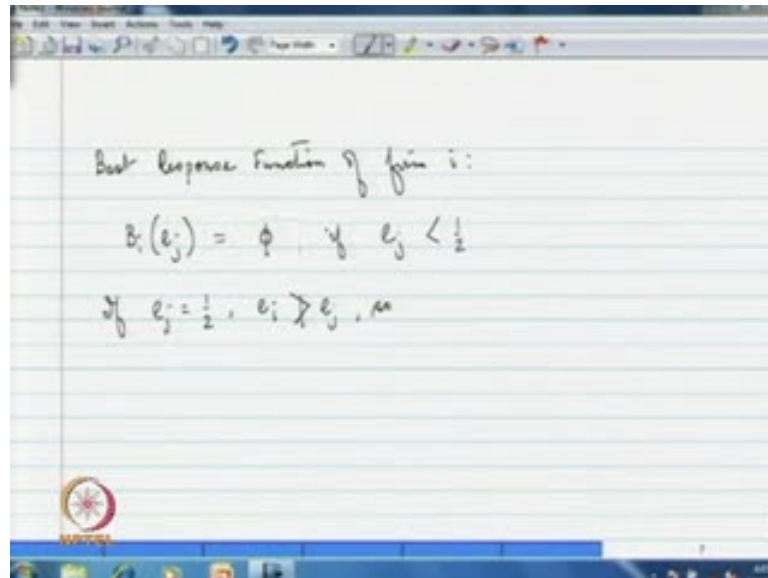 Edit View Insert Actions Tools Help
Page Width
Best Response Function of firm i:
Bi(ej) = φ, if ej < 1/2
If ej = 1/2, ei > ej, 
NPTEL
7